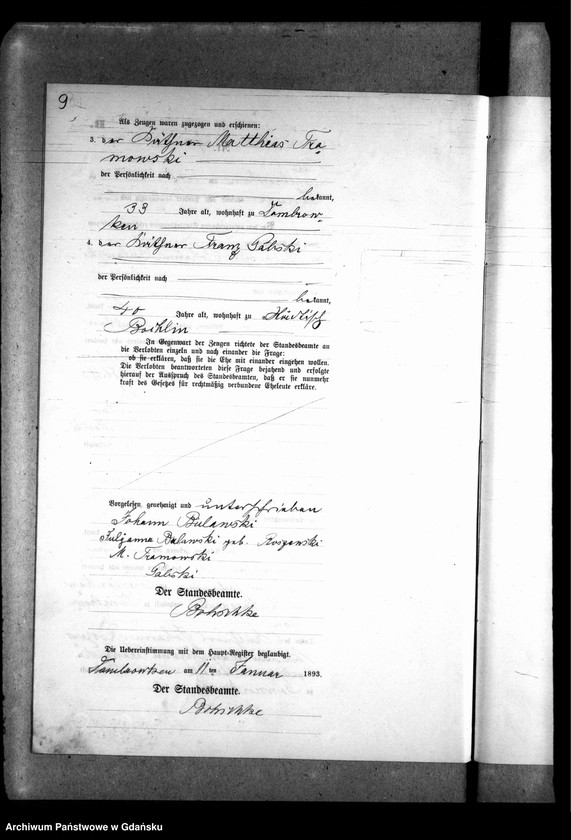 9
Als Zeugen waren zugezogen und erschienen:
3. der Käthner Matthias Tra-
mowski
der Persönlichkeit nach
bekannt,
33 Jahre alt, wohnhaft zu Dombrow-
ken
4. der Käthner Franz Galski
der Persönlichkeit nach
bekannt,
40 Jahre alt, wohnhaft zu
Bochlin
In Gegenwart der Zeugen richtete der Standesbeamte an
die Verlobten einzeln und nach einander die Frage:
ob sie erklären, daß sie die Ehe mit einander eingehen wollen.
Die Verlobten beantworteten diese Frage bejahend und erfolgte
hierauf der Ausspruch des Standesbeamten, daß er sie nunmehr
kraft des Gesetzes für rechtmäßig verbundene Eheleute erkläre.
Vorgelesen, genehmigt und unterschrieben
Johann Bulawski
Julianna Bulawski geb. Roszanski
M. Tramowski
Galski
Der Standesbeamte.
Die Uebereinstimmung mit dem Haupt-Register beglaubigt.
am 11 ten Januar 1893.
Der Standesbeamte.
Archiwum Państwowe w Gdańsku